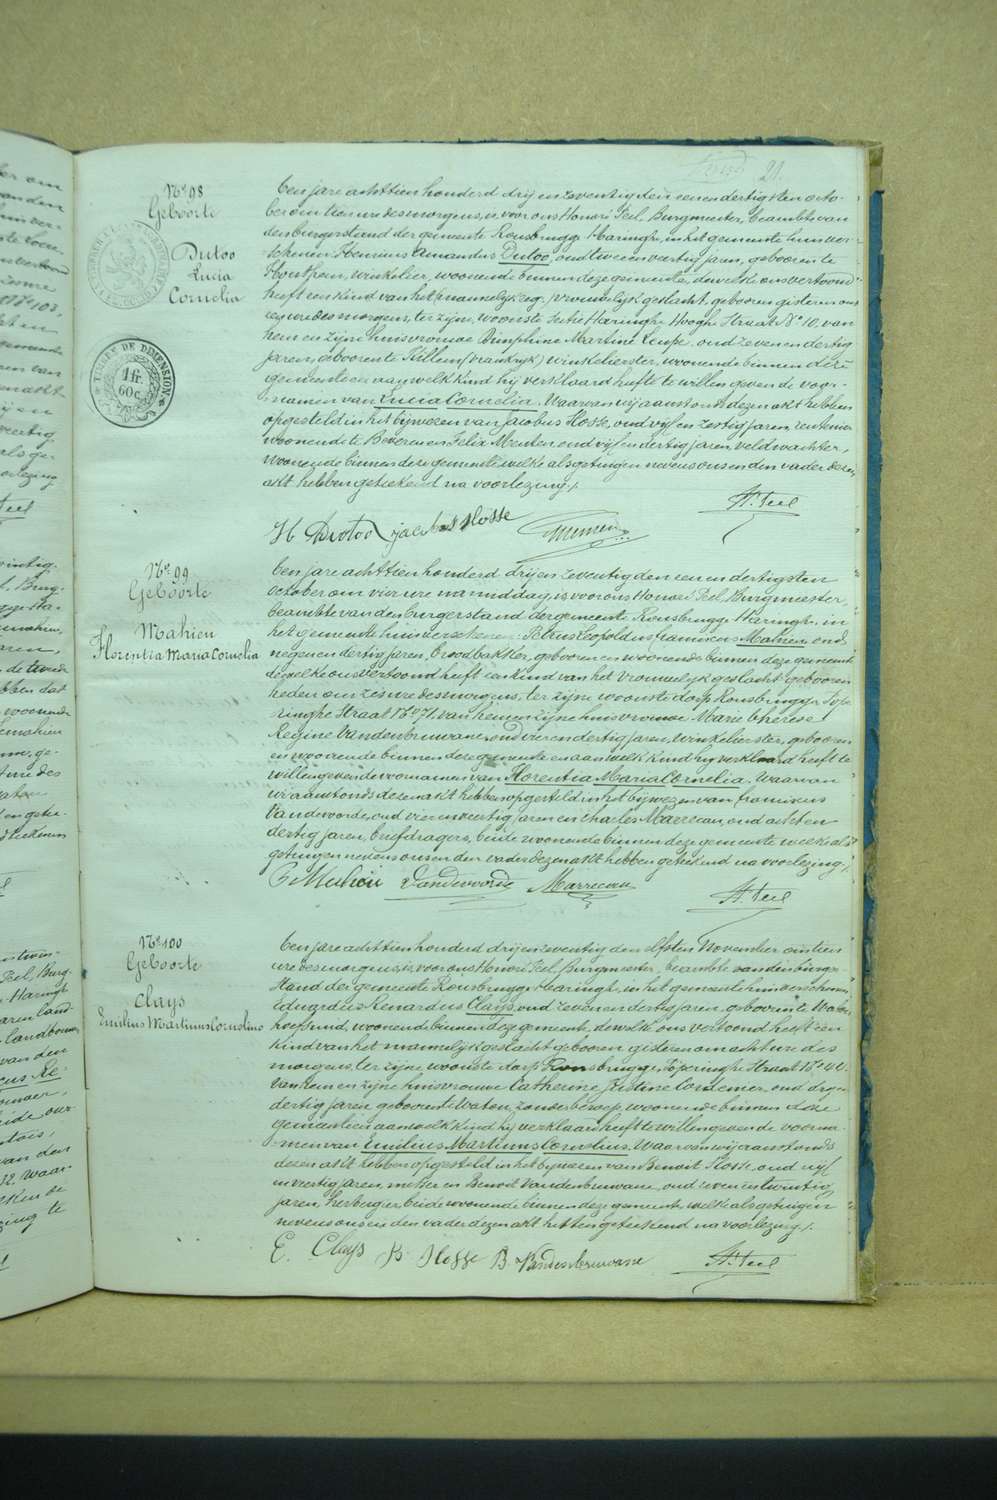 21.
Nº 98
Geboorte
Dutoo
Lucia
Cornelia
TIMBRE DE DIMENSION
1 fr.
60 c.
Ten jare achttien honderd drij en zeventig den een en dertigsten octo-
ber om tien ure des morgens, is voor ons Honoré Teel, Burgmeester, beambte van
den burgerstand der gemeente Rousbrugge Haringhe, in het gemeente huis ver-
schenen Henricus Amandus Dutoo, oud twee en veertig jaren, geboren te
Houthem, winkelier, woonende binnen deze gemeente, dewelke ons vertoond
heeft een kind van het vrouwelijk geslacht, geboren gisteren om
ure des morgens, ter zijne woonste Sectie Haringhe Hooghe Straat Nº 10, van
hem en zijne huisvrouwe Dimphine Martine Leupe, oud zeven en dertig
jaren, geboren te Killem (Frankrijk) winkelierster, woonende binnen deze
gemeente en aan welk kind hij verklaard heeft te willen geven de voor-
namen van Lucia Cornelia. Waarvan wij aanstonds dezen akt hebben
opgesteld in het bijwezen van Jacobus Hosse, oud vijf en zestig jaren, rentenier
woonende te Beveren en Felix Meuten, oud vijf en dertig jaren, veldwachter,
woonende binnen deze gemeente welke als getuigen nevens ons en den vader dezen
akt hebben geteekend na voorlezing /.
H Dutoo jacobus Hosse
H. Teel
Nº 99
Geboorte
Mahieu
Florentia Maria Cornelia
Ten jare achttien honderd drij en zeventig den een en dertigsten
october om vier ure namiddag, is voor ons Honoré Teel, Burgmeester,
beambte van den burgerstand der gemeente Rousbrugge Haringhe, in
het gemeente huis verschenen Petrus Leopoldus franciscus Mahieu, oud
negen en dertig jaren, broodbakker, geboren en woonende binnen deze gemeente
dewelke ons vertoond heeft een kind van het vrouwelijk geslacht geboren
heden om zes ure des morgens, ter zijne woonste dorp Rousbrugge Pope-
ringhe Straat Nº 71, van hem en zijne huisvrouwe Marie Therese
Regine Vandenbruwane, oud vier en dertig jaren, winkelierster, geboren
en woonende binnen deze gemeente en aan welk kind hij verklaard heeft te
willen geven de voornamen van Florentia Maria Cornelia. Waarvan
wij aanstonds dezen akt hebben opgesteld in het bijwezen van franciscus
Vandevoorde, oud vier en veertig jaren en Charles Marrecau, oud acht en
dertig jaren, briefdragers, beide woonende binnen deze gemeente welke als
getuigen nevens ons en den vader dezen akt hebben geteekend na voorlezing /.
P Mahieu Vandevoorde Marrecau
H. Teel
Nº 100
Geboorte
Clays
Emilius Martinus Cornelius
Ten jare achttien honderd drij en zeventig den elfsten November om tien
ure des morgens, is voor ons Honoré Teel, Burgmeester, beambte van den burger
stand der gemeente Rousbrugge Haringhe, in het gemeente huis verschenen,
Eduardus Renardus Clays, oud zeven en dertig jaren, geboren te
woonende binnen deze gemeente, dewelke ons vertoond heeft een
kind van het mannelijk geslacht geboren gisteren om acht ure des
morgens, ter zijne woonste dorp Rousbrugge, Poperinghe Straat Nº 40.
van hem en zijne huisvrouwe Catherine Justine Cornemer, oud drij en
dertig jaren geboren te Watou, zonder beroep, woonende binnen deze
gemeente en aan welk kind hij verklaard heeft te willen geven de voorna-
men van Emilius Martinus Cornelius. Waarvan wij aanstonds
dezen akt hebben opgesteld in het bijwezen van Benoit Hosse, oud vijf
en veertig jaren, metser en Benoit Vandenbruwane, oud zeven en twintig
jaren, herbergier, beide woonende binnen deze gemeente welke als getuigen
nevens ons en den vader dezen akt hebben geteekend na voorlezing /.
E. Clays B Hosse B. Vandenbruwane
H. Teel